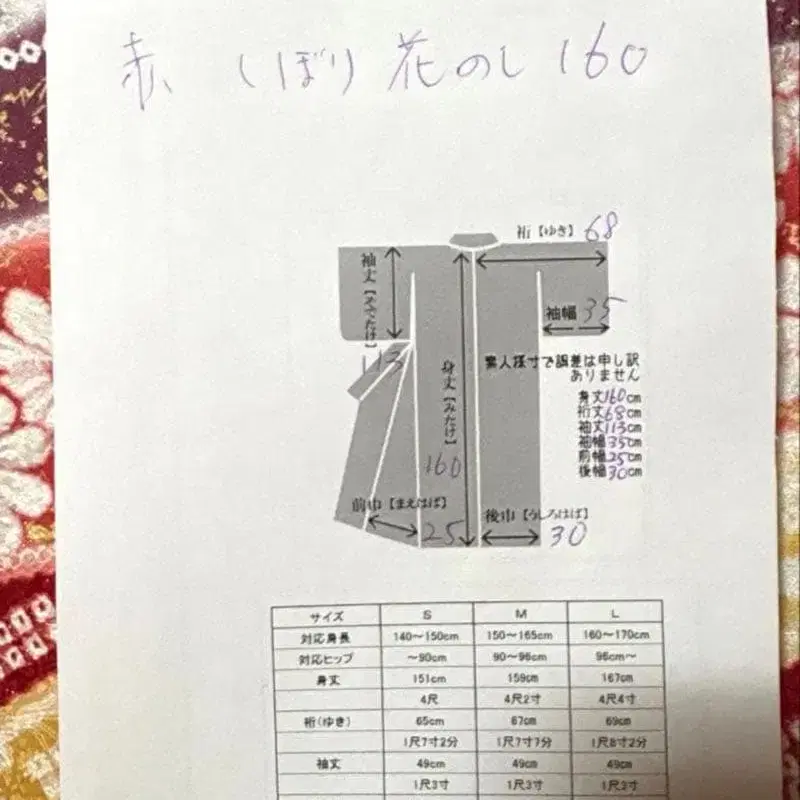 赤 しぼり 花のし 160
裄【ゆき】 68
袖丈【そでたけ】
113
袖幅 35
身丈【みたけ】
160
素人採寸で誤差は申し訳
ありません
身丈160cm
裄丈68cm
袖丈113cm
袖幅35cm
前幅25cm
後幅30cm
前巾【まえはば】
25
後巾【うしろはば】
30
サイズ S M L
対応身長 140～150cm 150～165cm 160～170cm
対応ヒップ ～90cm 90～96cm 96cm～
身丈 151cm 159cm 167cm
4尺 4尺2寸 4尺4寸
裄(ゆき) 65cm 67cm 69cm
1尺7寸2分 1尺7寸7分 1尺8寸2分
袖丈 49cm 49cm 49cm
1尺3寸 1尺3寸 1尺3寸